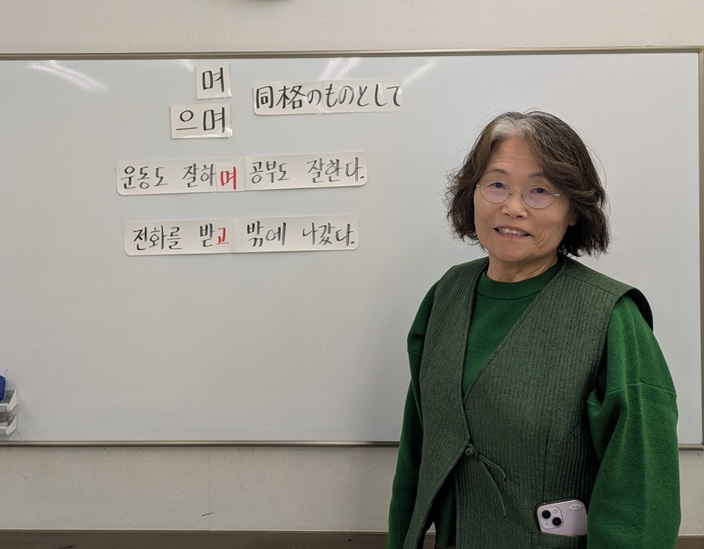 며
으며
同格のものとして
운동도 잘하며 공부도 잘한다.
전화를 받고 밖에 나갔다.